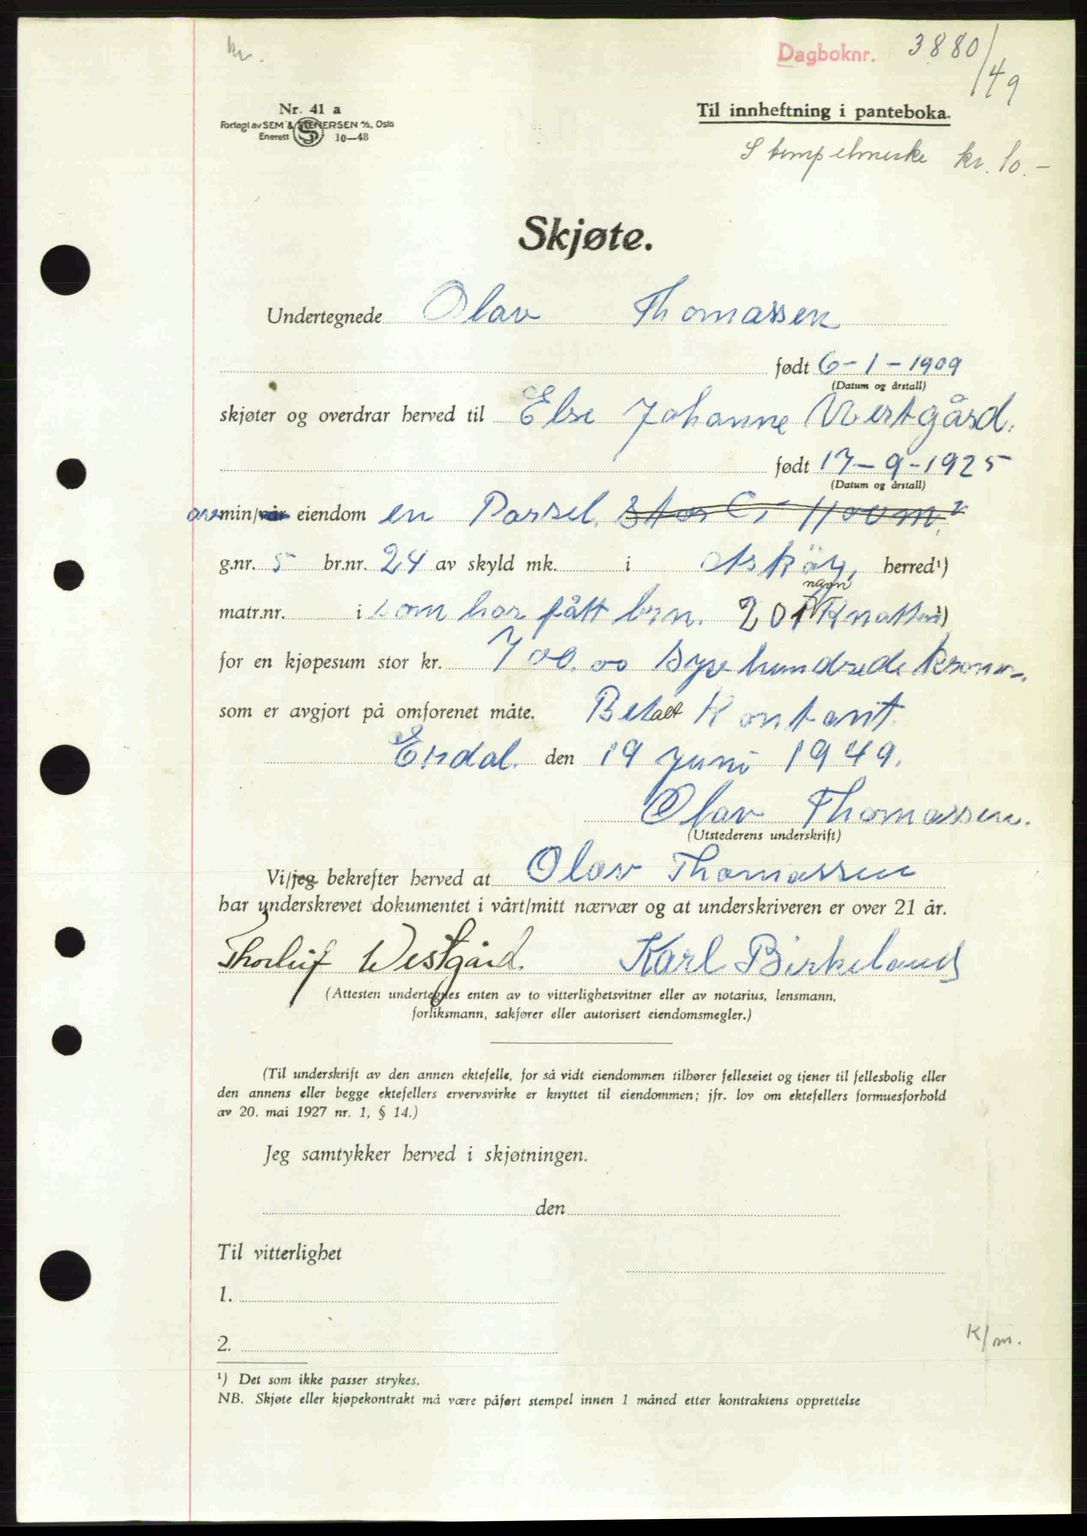 kr.
Dagboknr. 3880/49
Nr. 41 a
Forlagt av SEM & STENERSEN A/S, Oslo
Enerett 10—48
Til innheftning i panteboka.
Stempelmerke kr. 10.-
Skjøte.
Undertegnede Olav Thomassen
født 6-1-1909
(Datum og årstall)
skjøter og overdrar herved til Else Johanne Vestgård.
født 17-9-1925
(Datum og årstall)
min/vår eiendom en Parsel. Stor Ci 1100 m²
g.nr. 5 br.nr. 24 av skyld mk. i Askøy, herred¹)
navn
matr.nr. i som har fått brn. 201
for en kjøpesum stor kr. 700.00 Syv hundrede kroner.
som er avgjort på omforenet måte. Betalt Kontant.
Erdal. den 19 Juni 1949.
Olav Thomassen.
(Utstederens underskrift)
Vi/jeg bekrefter herved at Olav Thomassen
har underskrevet dokumentet i vårt/mitt nærvær og at underskriveren er over 21 år.
Thorleif Westgård. Karl Birkeland
(Attesten undertegnes enten av to vitterlighetsvitner eller av notarius, lensmann,
forliksmann, sakfører eller autorisert eiendomsmegler.)
(Til underskrift av den annen ektefelle, for så vidt eiendommen tilhører felleseiet og tjener til fellesbolig eller
den annens eller begge ektefellers ervervsvirke er knyttet til eiendommen; jfr. lov om ektefellers formuesforhold
av 20. mai 1927 nr. 1, § 14.)
Jeg samtykker herved i skjøtningen.
den
Til vitterlighet
1.
2.
K/m.
¹) Det som ikke passer strykes.
NB. Skjøte eller kjøpekontrakt må være påført stempel innen 1 måned etter kontraktens opprettelse